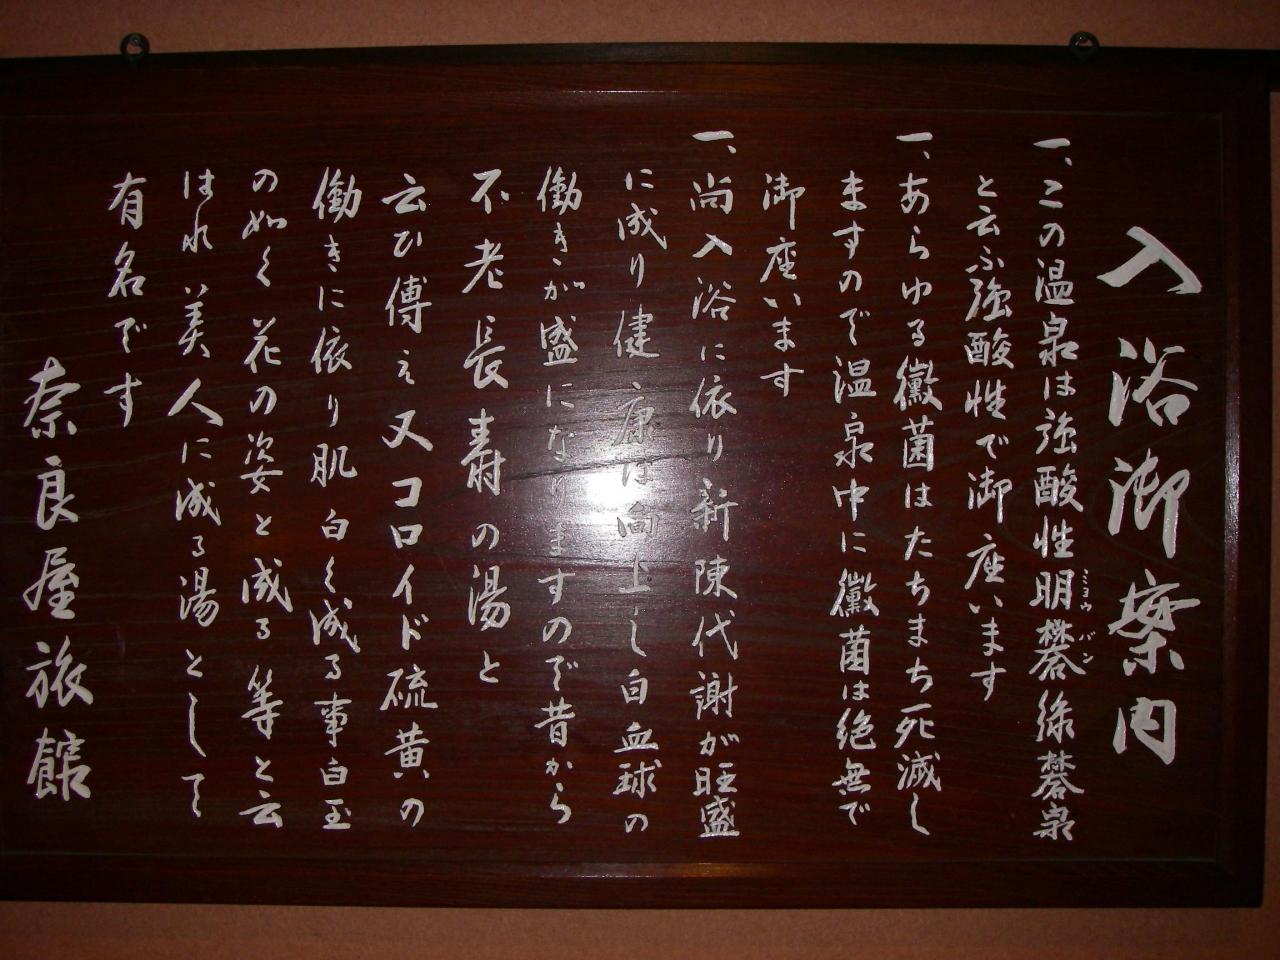 入浴御案内
一、この温泉は強酸性明礬緑礬泉
ミョウバン
と云ふ強酸性で御座います
一、あらゆる黴菌はたちまち死滅し
ますので温泉中に黴菌は絶無で
御座います
一、尚入浴に依り新陳代謝が旺盛
に成り健康は向上し白血球の
働きが盛になりますので昔から
不老長寿の湯と
云ひ傳え又コロイド硫黄の
働きに依り肌白く成る事白玉
の如く花の姿と成る等と云
はれ美人に成る湯として
有名です
奈良屋旅館